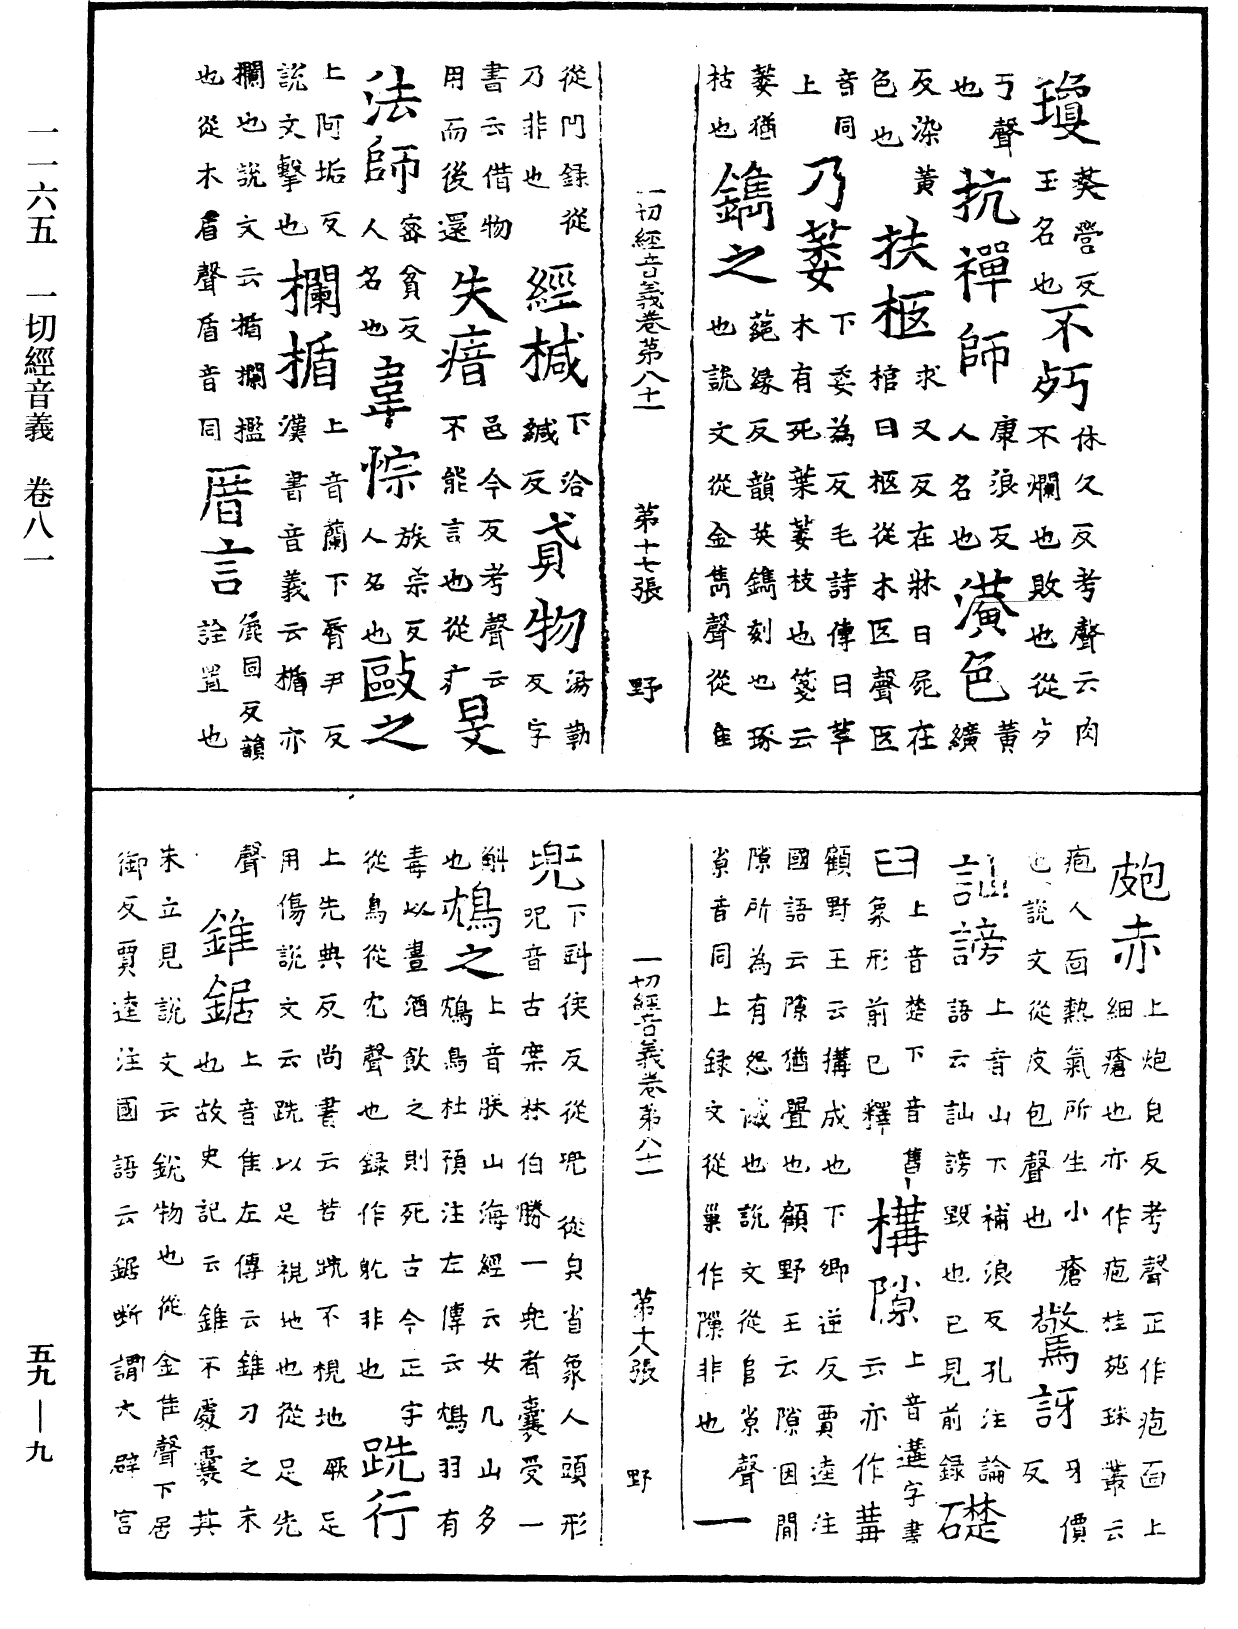 一一六五　一切經音義　卷八一
五九—九
瓊　葵營反
玉名也不朽　休久反考聲云肉
不爛也敗也從歹
丂聲抗禪師　康浪反
人名也潢色　黃
纊
反染黃
色也扶柩　求又反在牀曰屍在
棺曰柩從木匛聲匛
音同
上乃萎　下委為反毛詩傳曰草
木有死葉萎枝也箋云
萎猶
枯也鐫之　蕝緣反韻英鐫刻也琢
也說文從金雋聲從隹
一切經音義卷第八十一　第十七張　野
從門録從
乃非也經椷　下洽
緘反貣物　湯勒
反字
書云借物
用而後還失瘖　邑今反考聲云
不能言也從疒旻
法師　密貧反
人名也韋悰　族宗反
人名也毆之
上阿垢反
說文擊也欄楯　上音蘭下脣尹反
漢書音義云楯亦
欄也說文云楯欄檻
也從木盾聲盾音同厝言　麁固反韻
詮置也
皰赤　上炮皃反考聲正作疱面上
細瘡也亦作疱桂苑珠叢云
疱人面熱氣所生小瘡
也說文從皮包聲也驚訝　牙價
反
訕謗　上音山下補浪反孔注論
語云訕謗毀也已見前録礎
臼　上音楚下音舊
象形前已釋構隙　上音遘字書
云亦作冓
顧野王云構成也下卿逆反賈逵注
國語云隙猶釁也顧野王云隙因閒
隙所為有怨憾也說文從𨸏𡭴聲
𡭴音同上録文從巢作隟非也一
一切經音義卷第八十一　第十八張　野
兜　下㪷侯反從兜從皃省象人頭形
咒音古案林伯勝一兜者囊受一
斛
也鴆之　上音朕山海經云女几山多
鴆鳥杜預注左傳云鴆羽有
毒以畫酒飲之則死古今正字
從鳥從冘聲也録作躭非也跣行
上先典反尚書云苦跣不視地厥足
用傷說文云跣以足視地也從足先
聲錐鋸　上音隹左傳云錐刀之末
也故史記云錐不處囊其
末立見說文云銳物也從金隹聲下居
御反賈逵注國語云鋸斷謂大辟宮